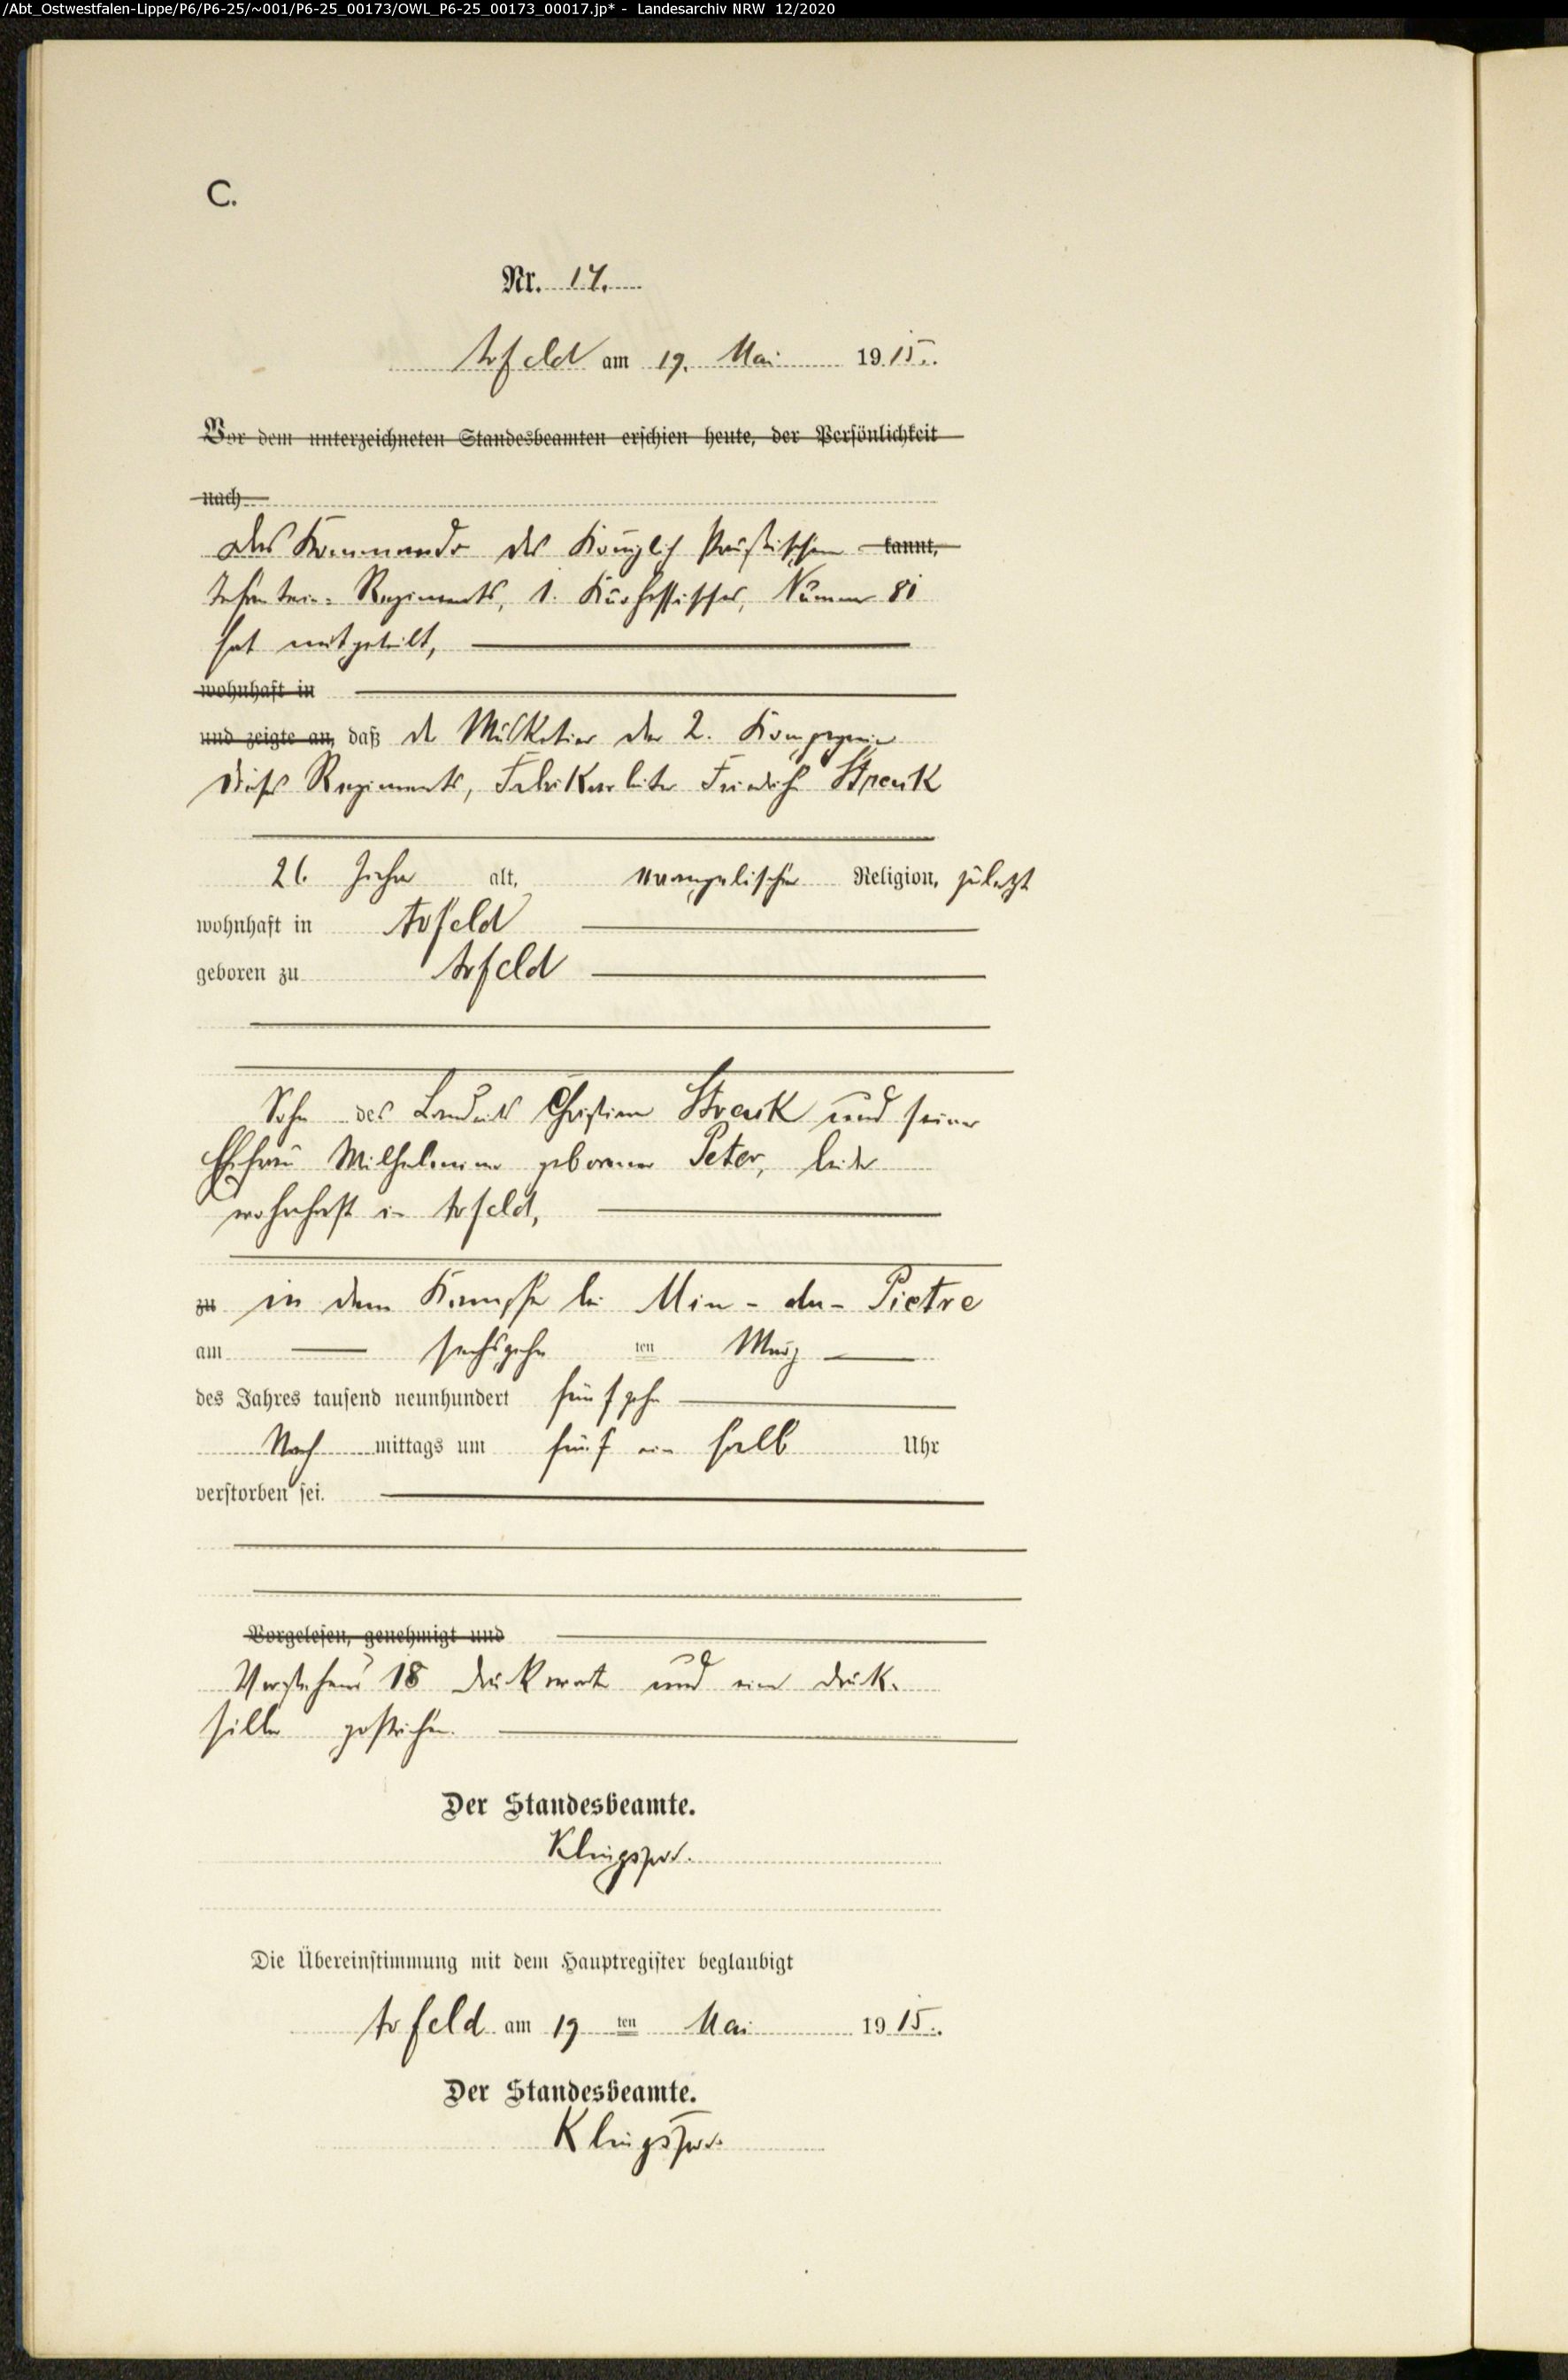 /Abt_Ostwestfalen-Lippe/P6/P6-25/~001/P6-25_00173/OWL_P6-25_00173_00017.jp* - Landesarchiv NRW 12/2020
C.
Nr. 17.
Arfeld am 19. Mai 1915.
Vor dem unterzeichneten Standesbeamten erschien heute, der Persönlichkeit
nach
Das Kommando des Königlich Preußischen kannt,
Infanterie-Regiments, 1. Kurhessisches, Nummer 81
hat mitgeteilt,
wohnhaft in
und zeigte an, daß der Musketier der 2. Kompagnie
dieses Regiments, Fabrikarbeiter Friedrich Strenk
Jahre alt, evangelischer Religion, zuletzt
wohnhaft in Arfeld
geboren zu Arfeld
Sohn des Christian Strenk und seiner
Ehefrau Wilhelmine geborener Peter, beide
wohnhaft in Arfeld,
zu in dem Kampfe bei Min-du-Pietre
am sechszehnten März
des Jahres tausend neunhundert fünfzehn
Nachmittags um fünf ein halb Uhr
verstorben sei.
Vorgelesen, genehmigt und
Vorstehend 18 Druckworte und eine Druck-
silbe gestrichen.
Der Standesbeamte.
Klingspor.
Die Übereinstimmung mit dem Hauptregister beglaubigt
Arfeld am 19ten Mai 1915.
Der Standesbeamte.
Klingspor.